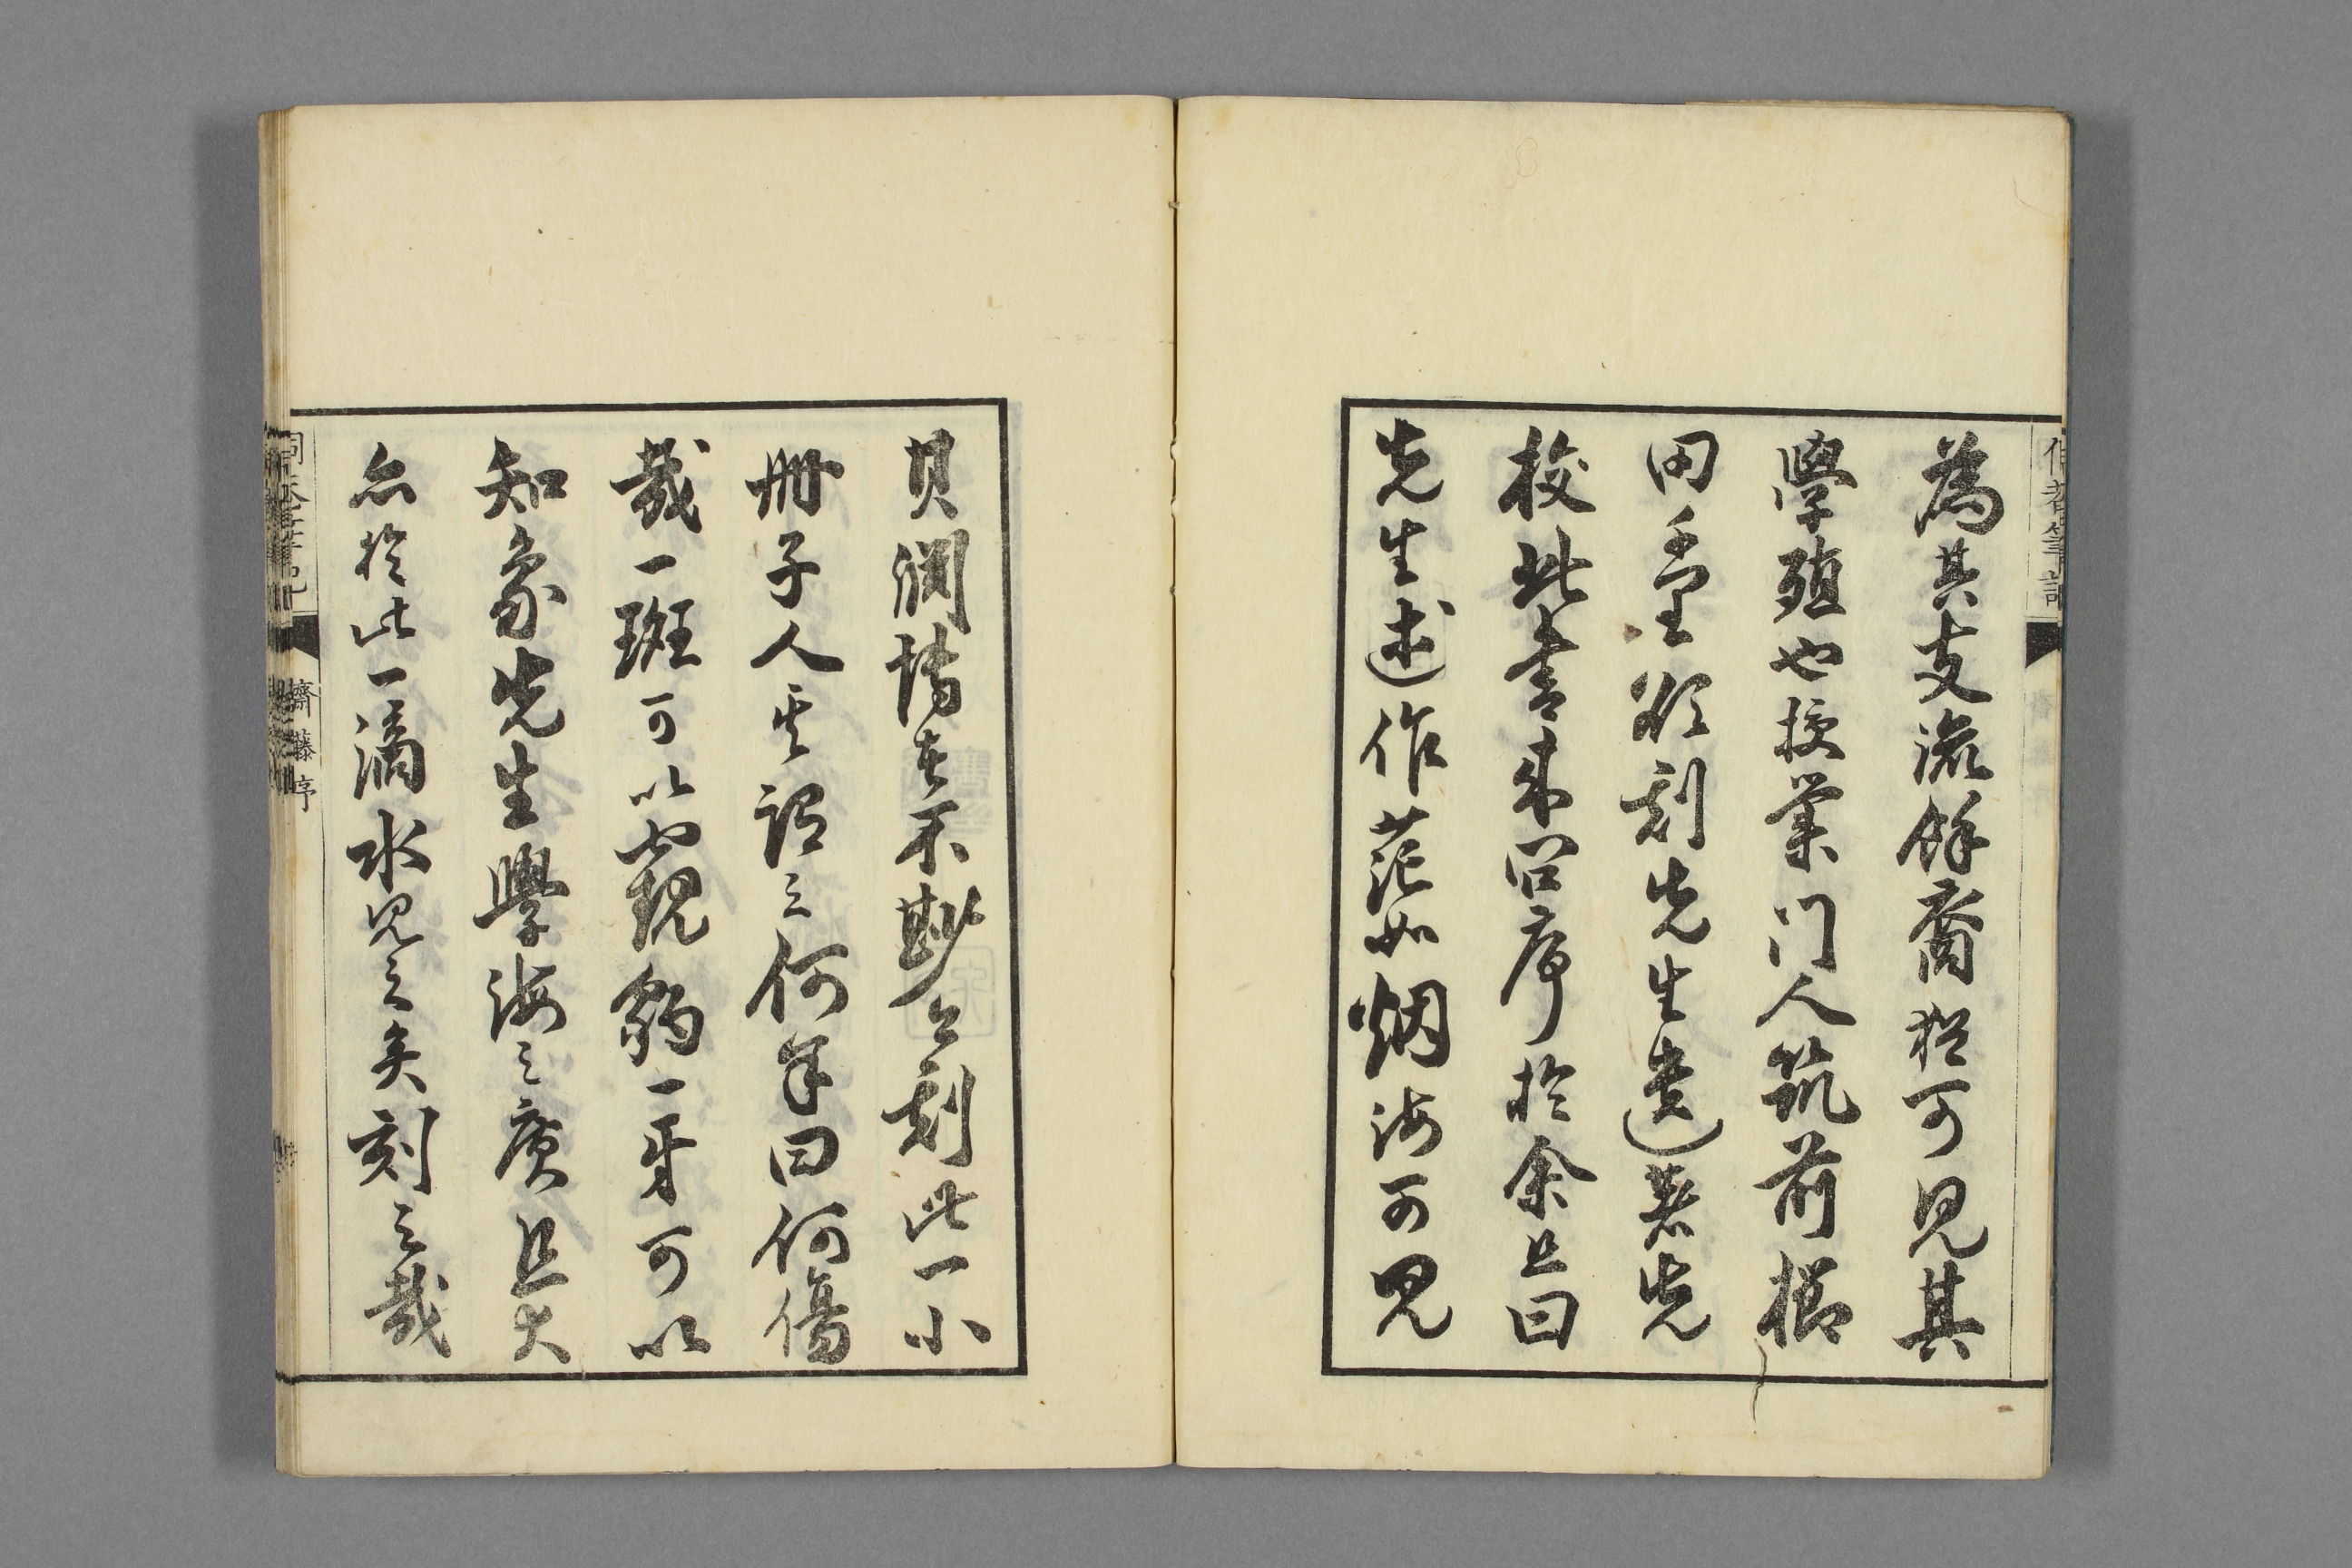 為其支流餘裔猶可見其
學殖也授業門人筑前櫛
田 刻先生遺著先
校此書來召序於余且曰
先生述作茫如烟海可見
其涯涘者不尠今刻此一小
冊子人其謂之何余曰何傷
哉一斑可以窺豹一牙可以
知象先生學海之廣且大
亦於此一滴水見之矣刻之哉
齋藤序